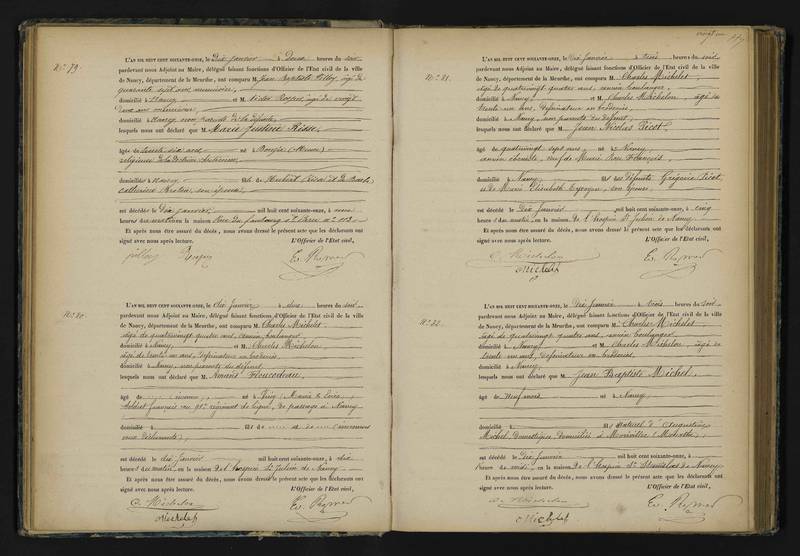 N° 79.
L'AN MIL HUIT CENT SOIXANTE-ONZE, le dix janvier à deux heures du soir
pardevant nous Adjoint au Maire, délégué faisant fonctions d'Officier de l'Etat civil de la ville
de Nancy, département de la Meurthe, ont comparu M. Jean Baptiste âgé de
quarante sept ans
domicilié à Nancy et M. Victor âgé de vingt
domicilié à Nancy non parents de la défunte,
lesquels nous ont déclaré que M. Marie Justine
âgée de trente six ans née à (Meuse)
religieuse de la Doctrine chrétienne
domiciliée à Nancy fille de Humbert et de Barbe,
Catherine son épouse,
est décédée le dix janvier mil huit cent soixante-onze, à onze
heures en la maison Rue du faubourg St Pierre n° 113
Et après nous être assuré du décès, nous avons dressé le présent acte que les déclarants ont
signé avec nous après lecture. L'Officier de l'Etat civil,
N° 80.
L'AN MIL HUIT CENT SOIXANTE-ONZE, le dix janvier à deux heures du soir
pardevant nous Adjoint au Maire, délégué faisant fonctions d'Officier de l'Etat civil de la ville
de Nancy, département de la Meurthe, ont comparu M. Charles Michelet
âgé de quatrevingt quatre ans, ancien boulanger,
domicilié à Nancy, et M. Charles Michelon
âgé de trente un ans, dessinateur en broderies
domicilié à Nancy, non parents du défunt
lesquels nous ont déclaré que M. Amand
âgé de né à
soldat français au régiment de ligne, de passage à Nancy
domicilié à fils de et de
est décédé le dix janvier mil huit cent soixante-onze, à dix
heures du matin, en la maison De l'hospice St Julien de Nancy
Et après nous être assuré du décès, nous avons dressé le présent acte que les déclarants ont
signé avec nous après lecture. L'Officier de l'Etat civil,
C. Michelon
Michelet
N° 81.
L'AN MIL HUIT CENT SOIXANTE-ONZE, le Dix Janvier à trois heures du soir
pardevant nous Adjoint au Maire, délégué faisant fonctions d'Officier de l'Etat civil de la ville
de Nancy, département de la Meurthe, ont comparu M. Charles Michelet
âgé de quatrevingt quatre ans, ancien boulanger,
domicilié à Nancy et M. Charles Michelon âgé de
trente un ans, dessinateur en broderies,
domicilié à Nancy, non parents du défunt,
lesquels nous ont déclaré que M. Jean Nicolas Picot,
âgé de quatrevingt sept ans, né à Nancy,
ancien ébéniste, veuf de Marie François,
domicilié à Nancy, fils des défunts Grégoire Picot,
et de Marie Elisabeth son épouse,
est décédé le Dix Janvier mil huit cent soixante-onze, à cinq
heures du matin, en la maison De l'hospice St Julien de Nancy
Et après nous être assuré du décès, nous avons dressé le présent acte que les déclarants ont
signé avec nous après lecture. L'Officier de l'Etat civil,
C. Michelon
Michelet
N° 82.
L'AN MIL HUIT CENT SOIXANTE-ONZE, le Dix Janvier à trois heures du soir
pardevant nous Adjoint au Maire, délégué faisant fonctions d'Officier de l'Etat civil de la ville
de Nancy, département de la Meurthe, ont comparu M. Charles Michelet
âgé de quatrevingt quatre ans, ancien boulanger
domicilié à Nancy et M. Charles Michelon, âgé de
trente un ans, dessinateur en broderies,
domicilié à Nancy,
lesquels nous ont déclaré que M. Jean Baptiste Michel,
âgé de neuf mois né à Nancy,
domicilié à fils naturel d'Augustine
Michel, Domestique, Domiciliée à (Meurthe),
est décédé le Dix Janvier mil huit cent soixante-onze, à
heures de midi, en la maison De l'hospice St Stanislas de Nancy
Et après nous être assuré du décès, nous avons dressé le présent acte que les déclarants ont
signé avec nous après lecture. L'Officier de l'Etat civil,
C. Michelon
Michelet